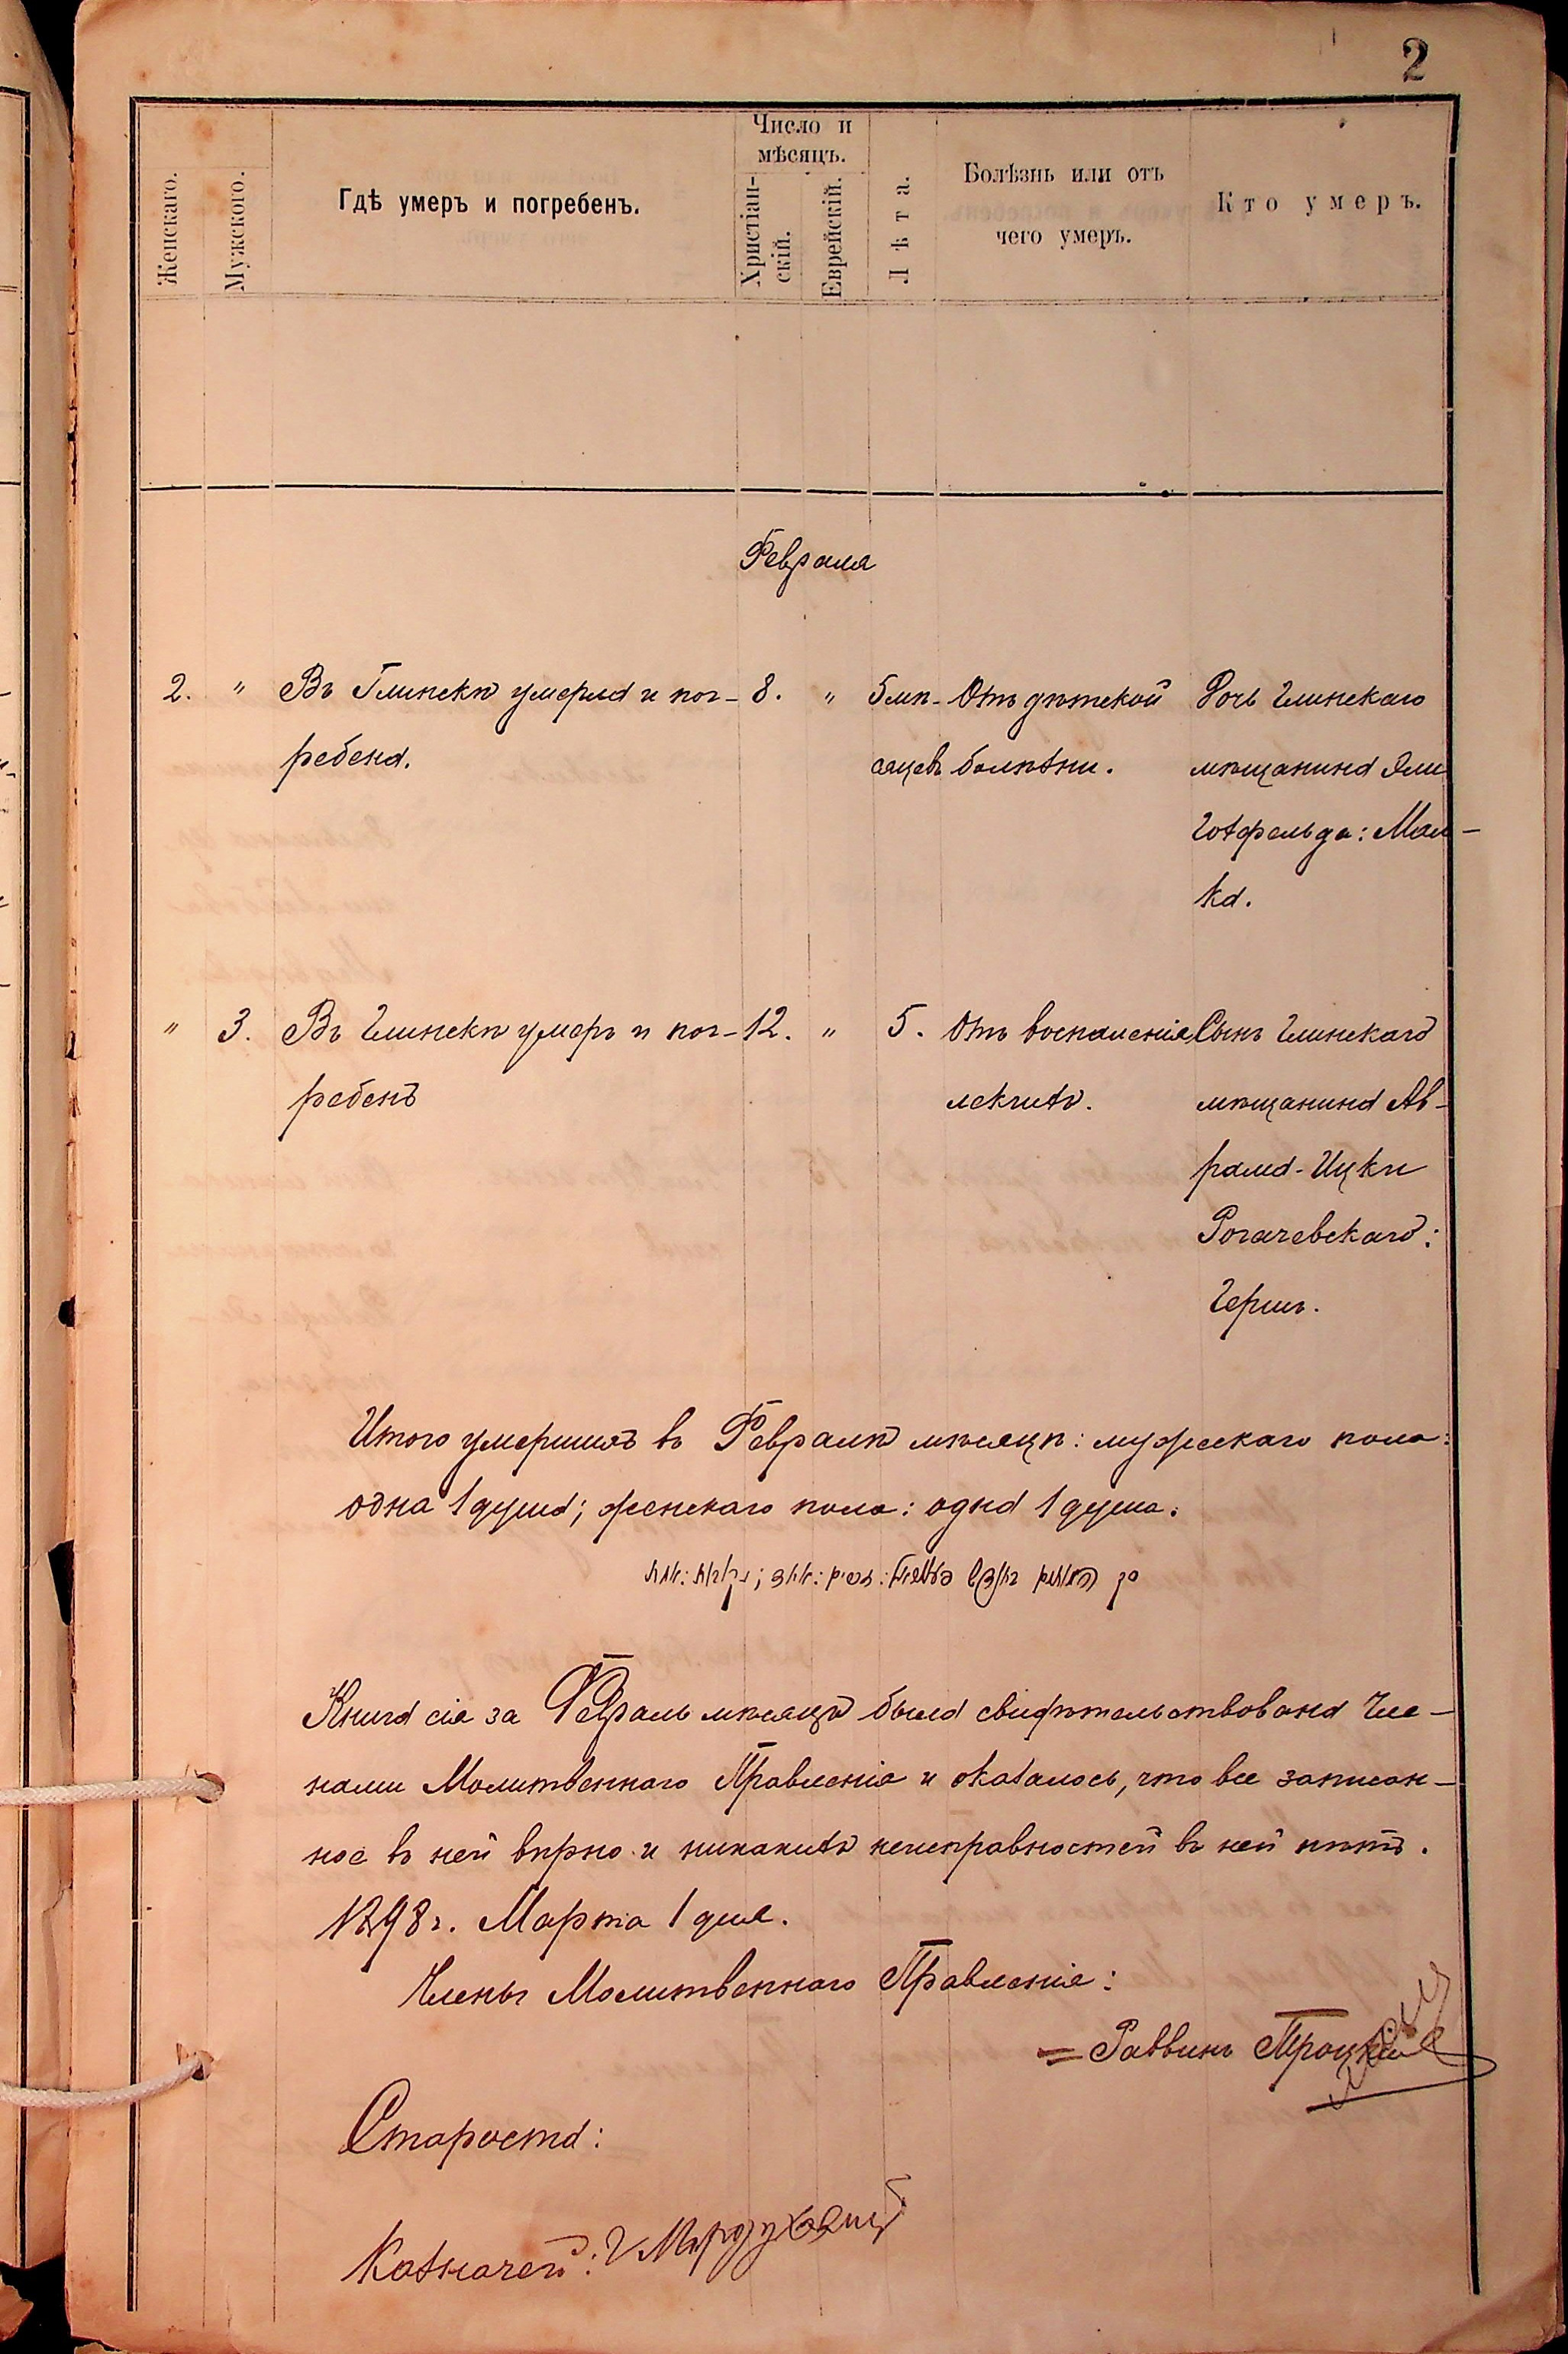 2
Женскаго.
Мужского.
Гдѣ умеръ и погребенъ.
Число и
мѣсяцъ.
Христіан-
скій.
Еврейскій.
Лѣта.
Болѣзнь или отъ
чего умеръ.
Кто умеръ.
Февраля
2. " Въ Глинскѣ умерла и пог- 8. " 5 мѣ- Отъ дѣтской Дочь Глинскаго
ребена. сяцевъ болѣзни. мѣщанина Эли
Гозфельда: Мал-
ка.
" 3. Въ Глинскѣ умеръ и пог- 12. " 5. Отъ воспаленія Сынъ Глинскаго
ребенъ легкихъ. мѣщанина Ав-
рама-Ицки
Рогачевскаго:
Гершъ.
Итого умершихъ въ Февралѣ мѣсяцѣ: мужескаго пола:
одна 1 душа; женскаго пола: одна 1 душа.
Книга сія за Февраль мѣсяцъ была свидѣтельствована Чле-
нами Молитвеннаго Правленія и оказалось, что все записан-
ное въ ней вѣрно и никакихъ неисправностей въ ней нѣтъ.
1898 г. Марта 1 дня.
Члены Молитвеннаго Правленія:
Раввинъ Троцкій
Староста:
Казначей: